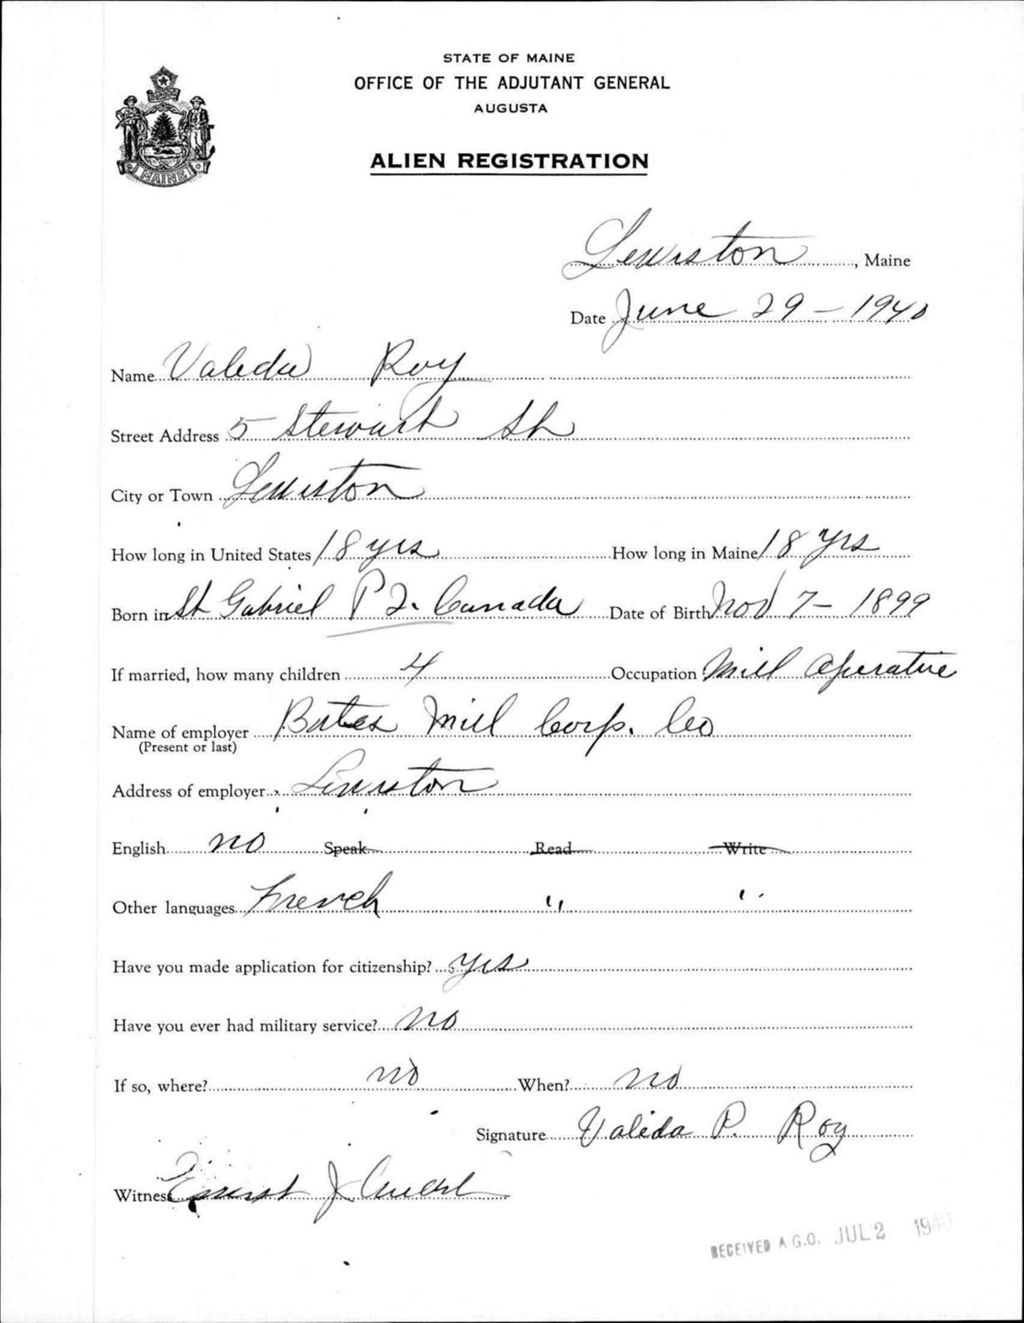 STATE OF MAINE
OFFICE OF THE ADJUTANT GENERAL
AUGUSTA
MAINE
ALIEN REGISTRATION
Lewiston, Maine
Date June 29 - 1940
Name Valeda Roy
Street Address 5 Stewart St
City or Town Lewiston
How long in United States 18 yrs How long in Maine 18 yrs
Born in St Gabriel P Q. Canada Date of Birth Nov 7 - 1899
If married, how many children 4 Occupation Mill Operative
Name of employer Bates Mill Corp. Co
(Present or last)
Address of employer Lewiston
English no Speak Read Write
Other languages French " "
Have you made application for citizenship? yes
Have you ever had military service? no
If so, where? no When? no
Signature Valéda P. Roy
Witness Ernest J
RECEIVED A.G.O. JUL 2 1940